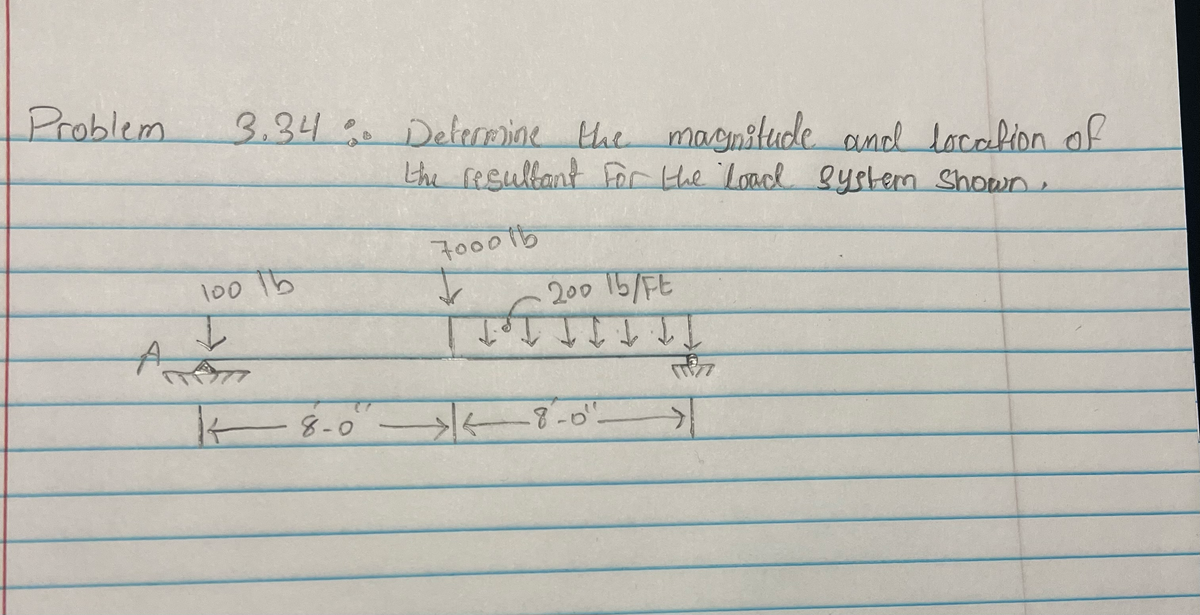 Problem 3.34 : Determine the magnitude and location of
the resultant For the load system shown.
7000 lb
100 lb
200 lb/Ft
A
8'-0"
8'-0"